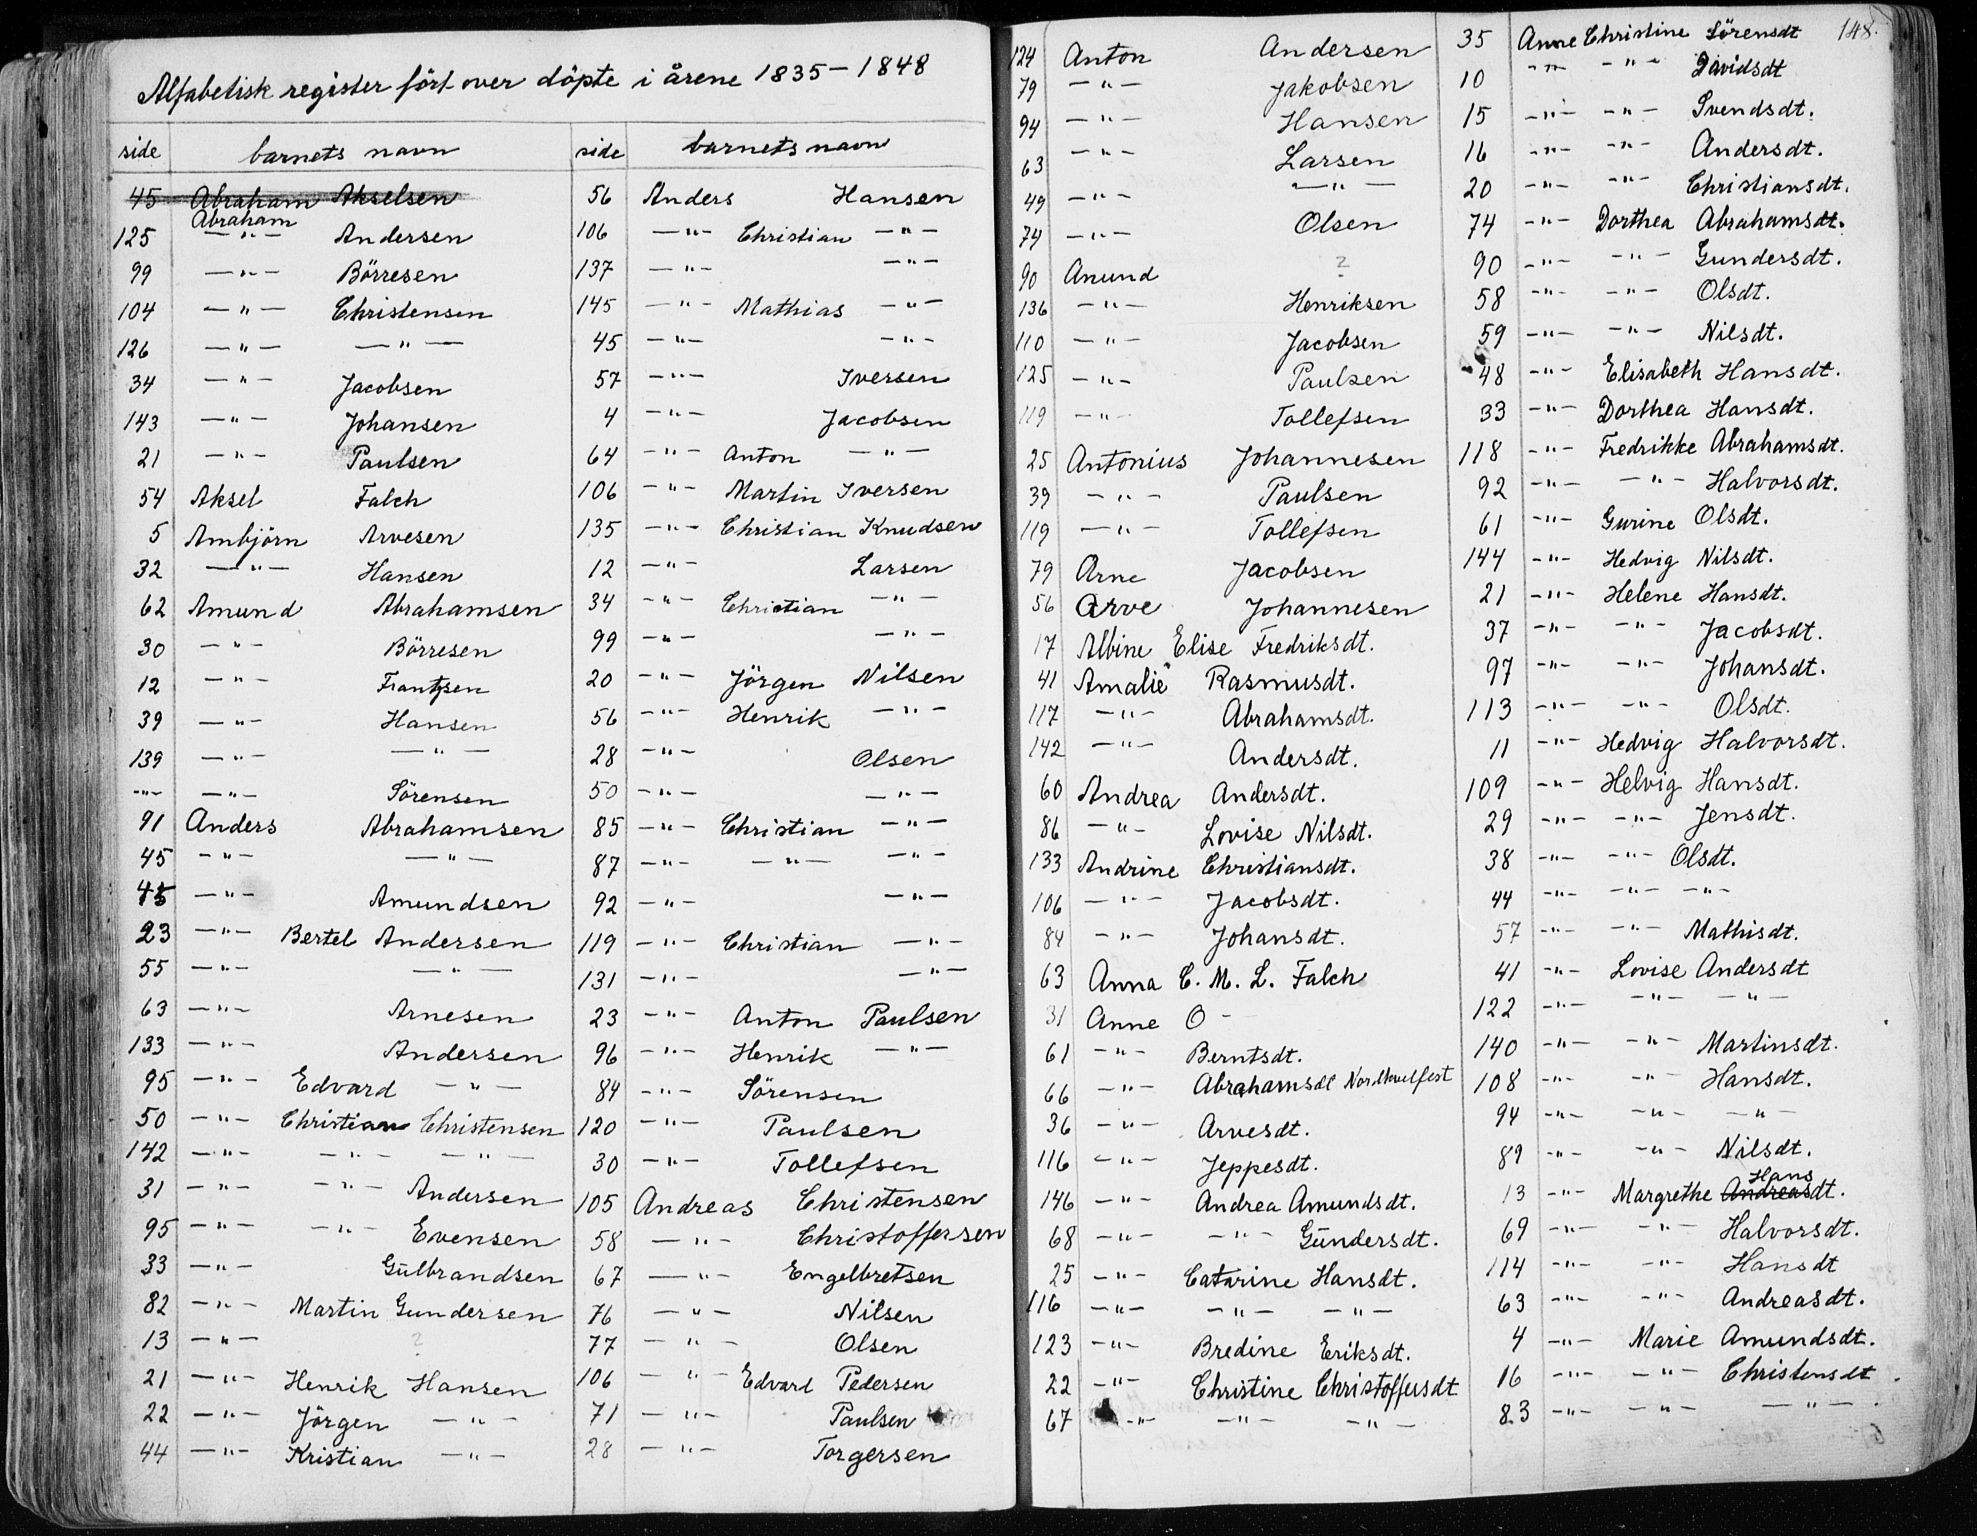 Alfabetisk register fört over döpte i årene 1835-1848
side barnets navn
45 Abraham Akselsen
Abraham
125 -"- Andersen
99 -"- Börresen
104 -"- Christensen
126 -"- -"-
34 -"- Jacobsen
143 -"- Johansen
21 -"- Paulsen
54 Aksel Falch
5 Ambjörn Arvesen
32 -"- Hansen
62 Amund Abrahamsen
30 -"- Börresen
12 -"- Frantzsen
39 -"- Hansen
139 -"- -"-
-"- -"- Sörensen
91 Anders Abrahamsen
45 -"- -"-
45 -"- Amundsen
23 -"- Bertel Andersen
55 -"- -"-
63 -"- Arnesen
133 -"- Andersen
95 -"- Edvard -"-
50 -"- Christian Christensen
142 -"- -"- -"-
31 -"- -"- Andersen
95 -"- -"- Evensen
33 -"- Gulbrandsen
82 -"- Martin Gundersen
13 -"- ?
21 -"- Henrik Hansen
22 -"- Jörgen -"-
44 -"- Kristian -"-
side barnets navn
56 Anders Hansen
106 -"- Christian -"-
137 -"- -"-
145 -"- Mathias -"-
45 -"- -"-
57 -"- Iversen
4 -"- Jacobsen
64 -"- Anton -"-
106 -"- Martin Iversen
135 -"- Christian Knudsen
12 -"- Larsen
34 -"- Christian -"-
99 -"- -"-
20 -"- Jörgen Nilsen
56 -"- Henrik -"-
28 -"- Olsen
50 -"- -"-
85 -"- Christian -"-
87 -"- -"- -"-
92 -"- -"-
119 -"- Christian -"-
131 -"- -"-
23 -"- Anton Paulsen
96 -"- Henrik -"-
84 -"- Sörensen
120 -"- Paulsen
30 -"- Tollefsen
105 Andreas Christensen
58 -"- Christoffersen
67 -"- Engelbretsen
76 -"- Nilsen
77 -"- Olsen
106 -"- Edvard Pedersen
71 -"- Paulsen
28 -"- Torgersen
124 Anton Andersen
79 -"- Jakobsen
94 -"- Hansen
63 -"- Larsen
49 -"- -"-
74 -"- Olsen
90 Anund ?
136 -"- Henriksen
110 -"- Jacobsen
125 -"- Paulsen
119 -"- Tollefsen
25 Antonius Johannesen
39 -"- Paulsen
119 -"- Tollefsen
79 Arne Jacobsen
56 Arve Johannesen
17 Albine Elise Fredriksdt.
41 Amalie Rasmusdt.
117 -"- Abrahamsdt.
142 -"- Andersdt.
60 Andrea Andersdt.
86 -"- Lovise Nilsdt.
133 Andrine Christiansdt.
106 -"- Jacobsdt.
84 -"- Johansdt.
63 Anna C. M. L. Falch
31 Anne O -
61 -"- Berntsdt.
66 -"- Abrahamsdt
36 -"- Arvesdt.
116 -"- Jeppesdt.
146 -"- Andrea Amundsdt.
68 -"- -"- Gundersdt.
25 -"- Catarine Hansdt.
116 -"- -"- -"-
123 -"- Bredine Eriksdt.
22 -"- Christine Christoffersdt
67 -"- -"- -"-
148.
35 Anne Christine Sörensdt
10 -"- -"- Davidsdt
15 -"- -"- Svendsdt.
16 -"- -"- Andersdt.
20 -"- -"- Christiansdt.
74 -"- Dorthea Abrahamsdt.
90 -"- -"- Gundersdt.
58 -"- -"- Olsdt.
59 -"- -"- Nilsdt.
48 -"- Elisabeth Hansdt.
33 -"- Dorthea Hansdt.
118 -"- Fredrikke Abrahamsdt.
92 -"- -"- Halvorsdt.
61 -"- Gurine Olsdt.
144 -"- Hedvig Nilsdt.
21 -"- Helene Hansdt.
37 -"- -"- Jacobsdt.
97 -"- -"- Johansdt.
113 -"- -"- Olsdt.
11 -"- Hedvig Halvorsdt.
109 -"- Helvig Hansdt.
29 -"- -"- Jensdt.
38 -"- -"- Olsdt.
44 -"- -"- -"-
57 -"- -"- Mathisdt.
41 -"- Lovise Andersdt
122 -"- -"- -"-
140 -"- -"- Martinsdt.
108 -"- -"- Hansdt.
94 -"- -"- -"-
89 -"- -"- Nilsdt.
Hans
13 -"- Margrethe Andreasdt.
69 -"- -"- Halvorsdt.
114 -"- -"- Hansdt
63 -"- -"- Andreasdt.
4 -"- Marie Amundsdt.
16 -"- -"- Christensdt.
83 -"- -"- -"-